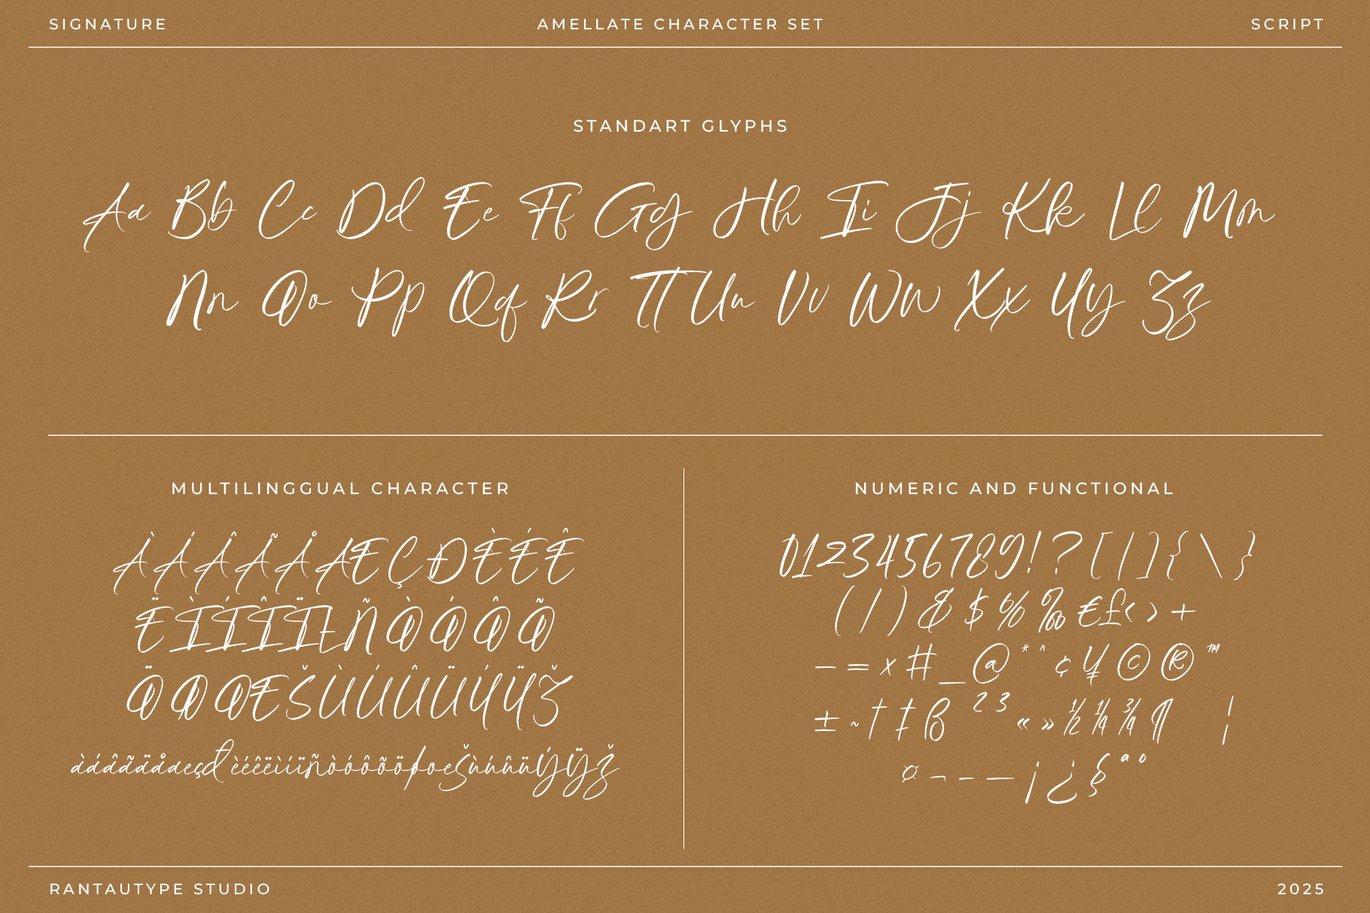 SIGNATURE
AMELLATE CHARACTER SET
SCRIPT
STANDART GLYPHS
Aa Bb Cc Dd Ee Ff Gg Hh Ii Jj Kk Ll Mm
Nn Oo Pp Qq Rr Tt Uu Vv Ww Xx Yy Zz
MULTILINGGUAL CHARACTER
ÀÁÂÃÅÆÇÐÈÉÊ
ËÌÍÎÏŁÑÒÓÔÕ
ÖØŒŠÙÚÛÜÝŸŽ
àáâãäåæçđèéêëìíîïñòóôõöøœšùúûüýÿž
NUMERIC AND FUNCTIONAL
0123456789!?[|]{\}
(/)&$%‰€£‹›+
−=×#_@*^¢¥©®™
±~†‡ß²³«»½¼¾¶¦
¤-–—¡¿§ªº
RANTAUTYPE STUDIO
2025